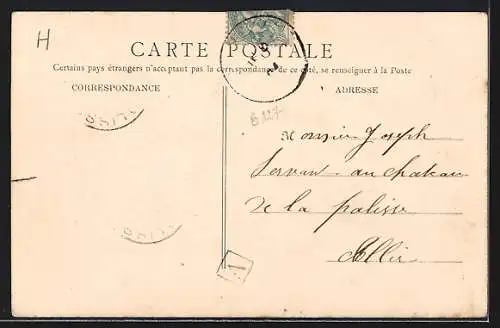 H
CARTE POSTALE
Certains pays étrangers n'acceptant pas la correspondance de ce côté, se renseigner à la Poste
CORRESPONDANCE
ADRESSE
Monsieur Joseph
Servan au chateau
de la palisse
Allier
A